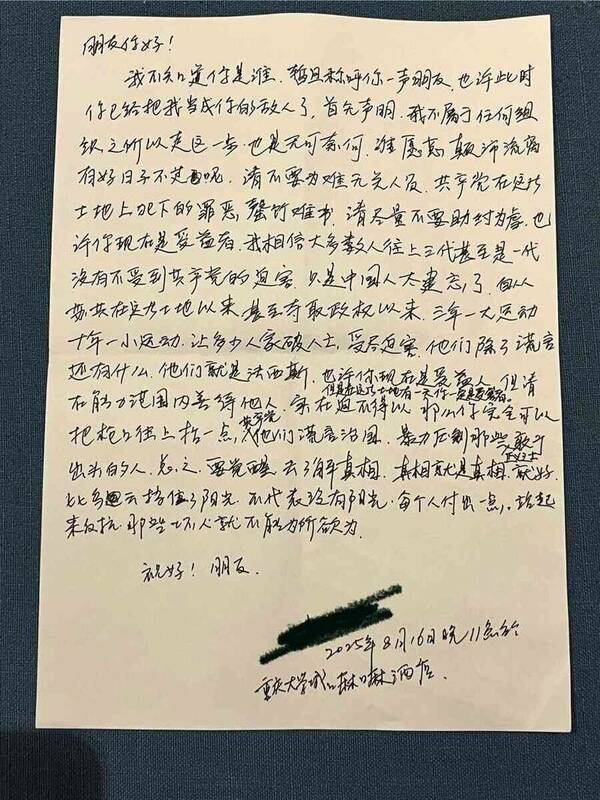 朋友你好!
我不知道你是谁.暂且称呼你一声朋友.也许此时
你已给把我当成你的敌人了,首先声明.我不属于任何组
织之所以走这一步.也是无可奈何.谁愿意颠沛流离
有好日子不过呢.请不要为难无关人员.共产党在这片
土地上犯下的罪恶,罄竹难书.请尽量不要助纣为虐.也
许你现在是受益者.我相信大多数人往上三代甚至是一代
没有不受到共产党的迫害.只是中国人太健忘了.自从
苏共在这片土地以来.甚至夺取政权以来.三年一大运动
十年一小运动.让多少人家破人亡,受尽迫害.他们除了谎言
还有什么.他们就是法西斯.也许你现在是受益人.但请
但是在这片土地有一天你一定是受害者.
在能力范围内善待他人.实在迫不得以那么你完全可以
共产党
把枪口往上抬一点,他们谎言治国.暴力压制那些敢于
义士
出头的人.总之.要觉醒去了解真相.真相就是真相.就好
比乌云挡住了阳光.不代表没有阳光.每个人付出一点,.站起
来反抗.那些人就不能为所欲为.
祝好!朋友.
2025年8月16日晚11点于
重庆大学城酒店.